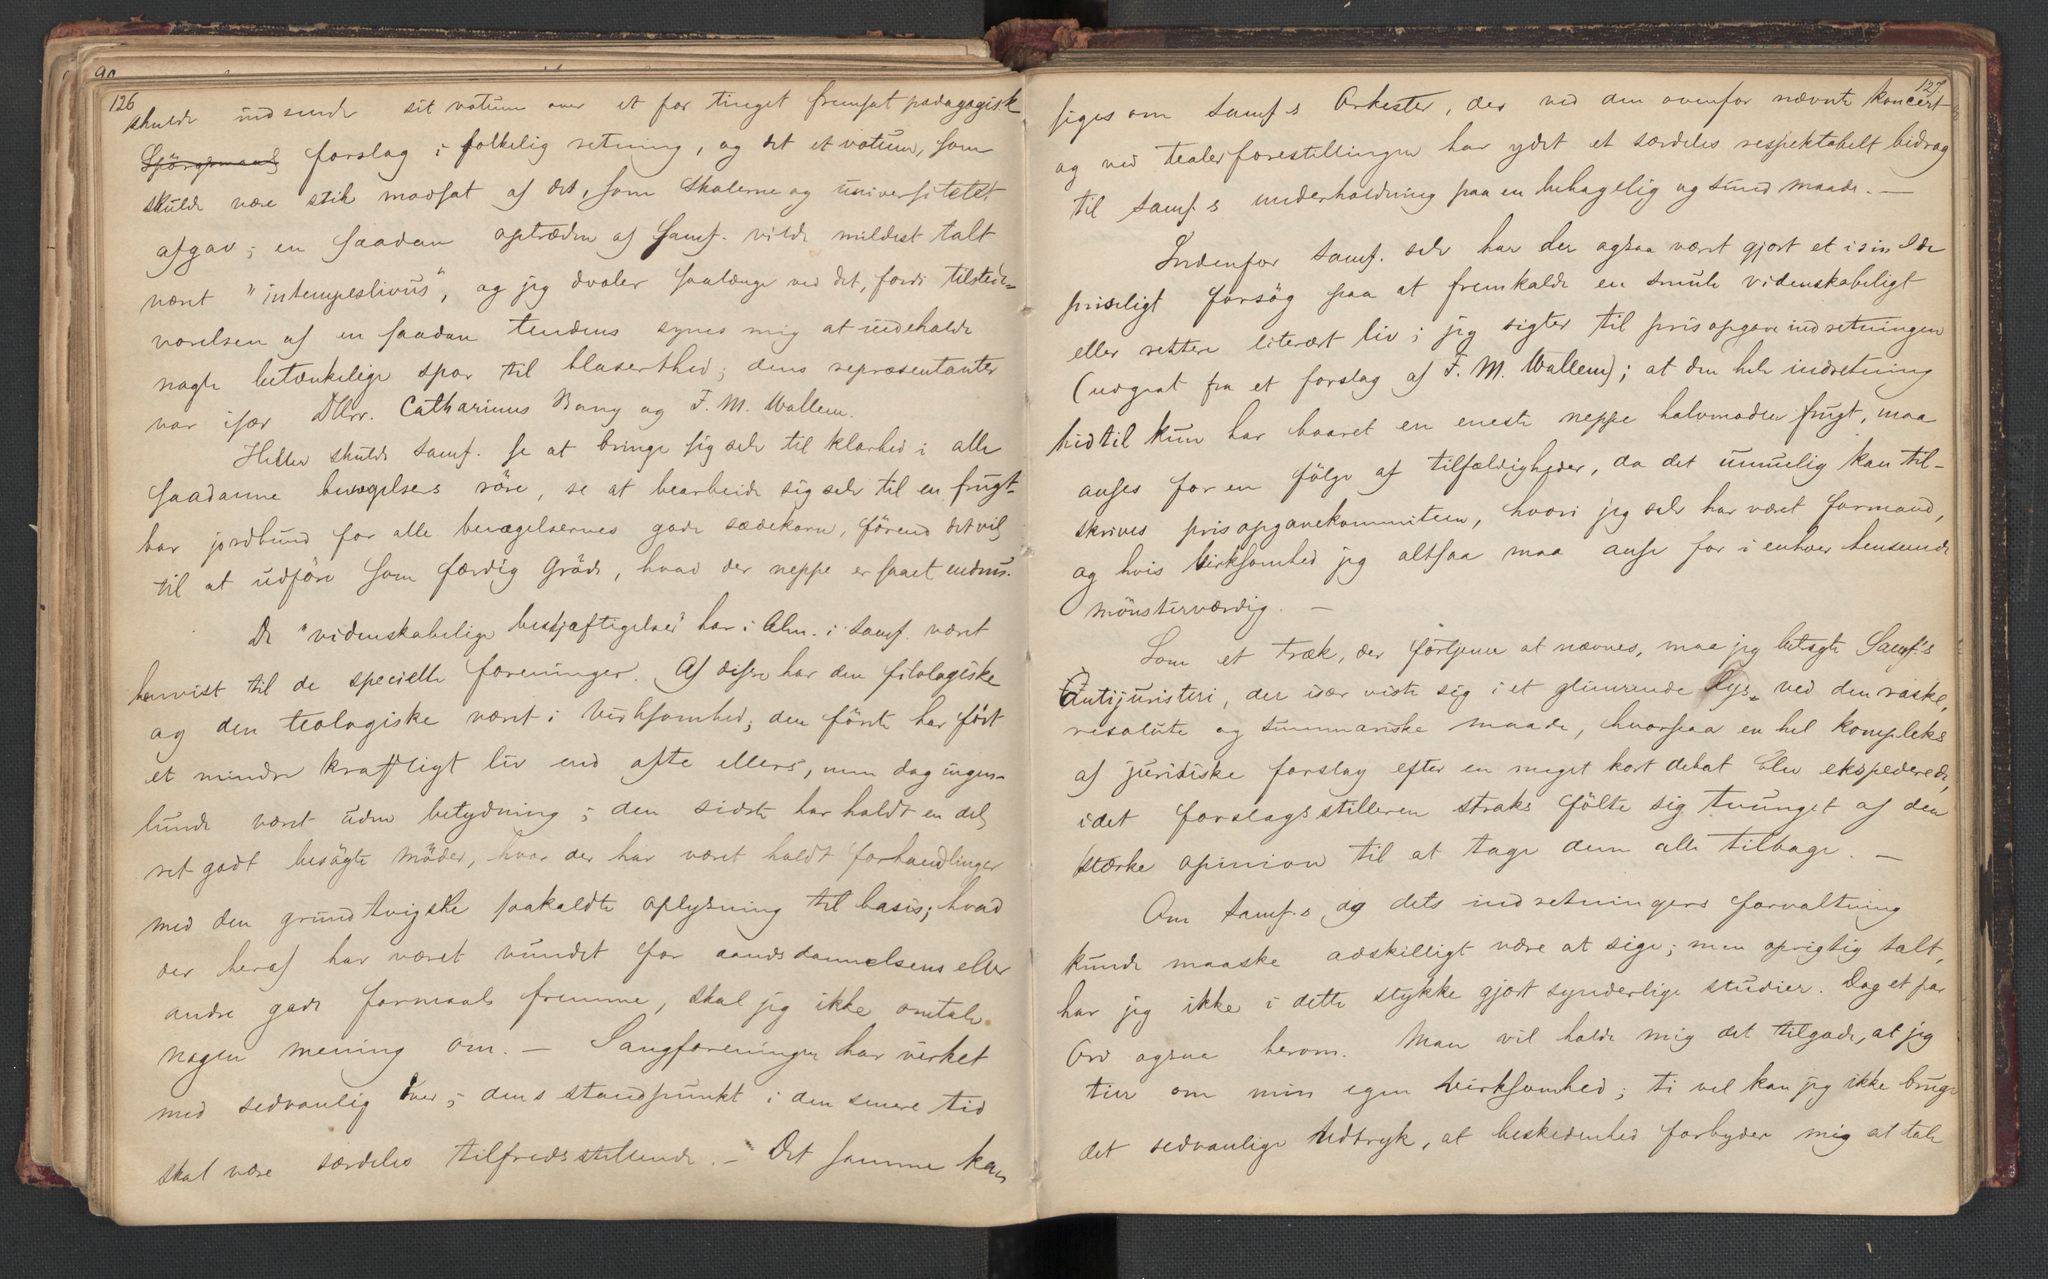 126
skulde indsende sit votum over et for tinget fremsat pædagogisk
Spörgsmaal forslag i folkelig retning, og det et votum, som
skulde være stik modsat af det, som skolerne og universitetet
afgav; en saadan optræden af Samf. vilde mildest talt
været "intempestivus", og jeg dvæler saalænge ved det, fordi tilstede-
værelsen af en saadan tendens synes mig at indeholde
nogle betænkelige spor til blaserthed; dens repræsentanter
var især DHrr. Catharinus Bang og F. M. Wallem.
Heller skulde Samf. se at bringe sig selv til klarhed i alle
saadanne bevægelses röre, se at bearbeide sig selv til en frugt-
bar jordbund for alle bevægelsernes gode sædekorn, förend det vil
til at udföre som færdig Gröde, hvad der neppe er saaet endnu.
De "videnskabelige beskjæftigelser" har i Alm. i Samf. været
henvist til de specielle foreninger. Af disse har den filologiske
og den teologiske været i Virksomhed; den förste har fört
et mindre kraftigt liv end ofte ellers, men dog ingen-
lunde været uden betydning; den sidste har holdt en del
ret godt besögte Möder, hvor der har været holdt forhandlinger
med den grundtvigske saakaldte oplysning til basis; hvad
der heraf har været vundet for aandsdannelsens eller
andre gode formaals fremme, skal jeg ikke omtale
nogen mening om. — Sangforeningen har virket
med sedvanlig Iver; dens standpunkt i den senere tid
skal være særdeles tilfredsstillende. — Det samme kan
127
siges om Samf.s Orkester, der ved den ovenfor nævnte koncert
og ved teaterforestillingen har ydet et særdeles respektabelt bidrag
til Samf.s underholdning paa en behagelig og sund maade. —
Indenfor Samf. selv har der ogsaa været gjort et i sin Ide
prisligt forsög paa at fremkalde en smule videnskabeligt
eller rettere literært liv; jeg sigter til prisopgaveindretningen
(udgaat fra et forslag af F. M. Wallem); at den hele indretning
hidtil kun har baaret en eneste neppe halvmoden frugt, maa
anses for en fölge af tilfældigheder, da det umulig kan til-
skrives prisopgavekommiteen, hvori jeg selv har været formand,
og hvis Virksomhed jeg altsaa maa anse for i enhver henseende
mönsterværdig. —
Som et træk, der fortjener at nævnes, maa jeg betegte Samf.s
Antijuristeri, der især viste sig i et glimrende Lys ved den raske,
resolute og summariske maade, hvorpaa en hel kompleks
af juridiske forslag efter en meget kort debat blev ekspederede,
idet forslagsstilleren straks fölte sig tvunget af den
stærke opinion til at tage dem alle tilbage. —
Om Samf.s og dets indretningers forvaltning
kunde maaske adskilligt være at sige; men oprigtig talt,
har jeg ikke i dette stykke gjort synderlige studier. Dog et par
Ord ogsaa herom. Man vil holde mig det tilgode, at jeg
tier om min egen Virksomhed; ti vel kan jeg ikke bruge
det sedvanlige Udtryk, at beskedenhed forbyder mig at tale